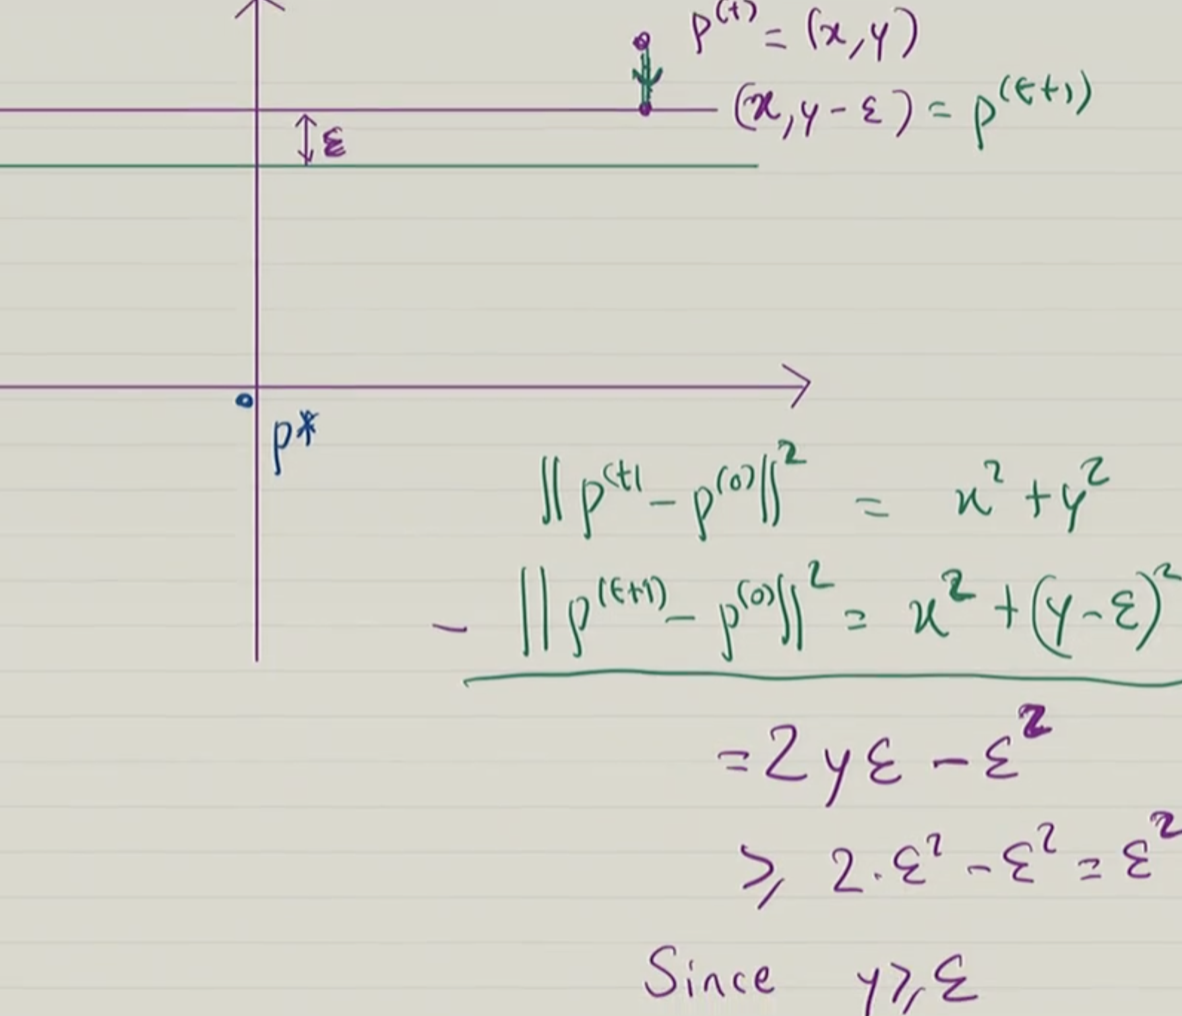 p^(t) = (x, y)
(x, y - ε) = p^(t+1)
ε
p*
||p^(t) - p^(0)||² = x² + y²
- ||p^(t+1) - p^(0)||² = x² + (y - ε)²
= 2yε - ε²
≥ 2·ε² - ε² = ε²
Since y ≥ ε